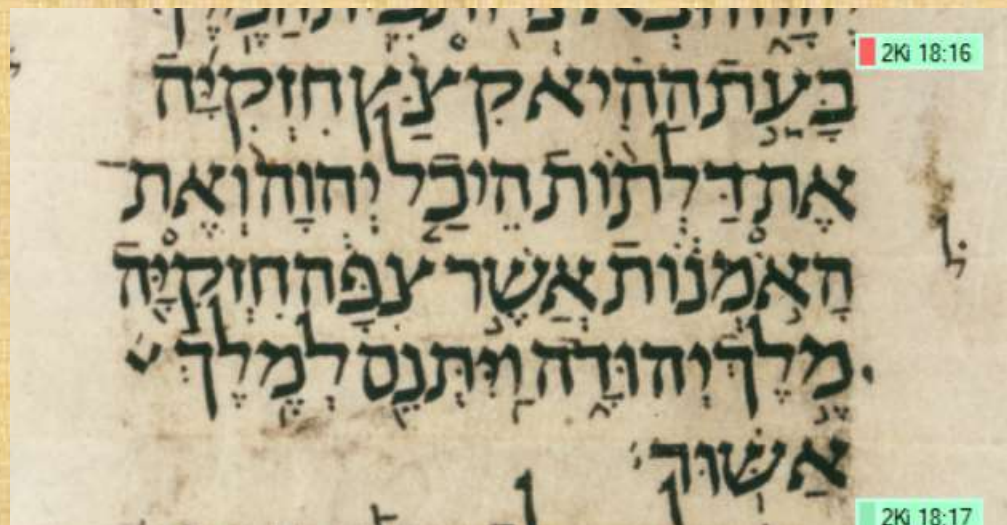 2Ki 18:16
בָּעֵת הַהִיא קִצַּץ חִזְקִיָּה
אֶת דַּלְתוֹת הֵיכַל יְהוָה וְאֶת־
הָאֹמְנוֹת אֲשֶׁר צִפָּה חִזְקִיָּה ל̇
מֶלֶךְ יְהוּדָה וַיִּתְּנֵם לְמֶלֶךְ
אַשּׁוּר׃
2Ki 18:17